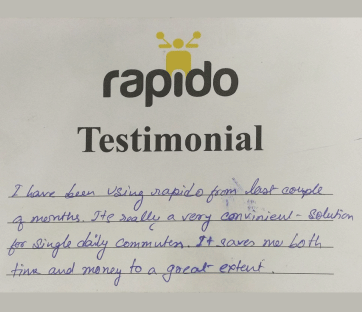 rapido
Testimonial
I have been using rapido from last couple
of months. Its really a very convinient - solution
for single daily commuters. It saves me both
time and money to a great extent.